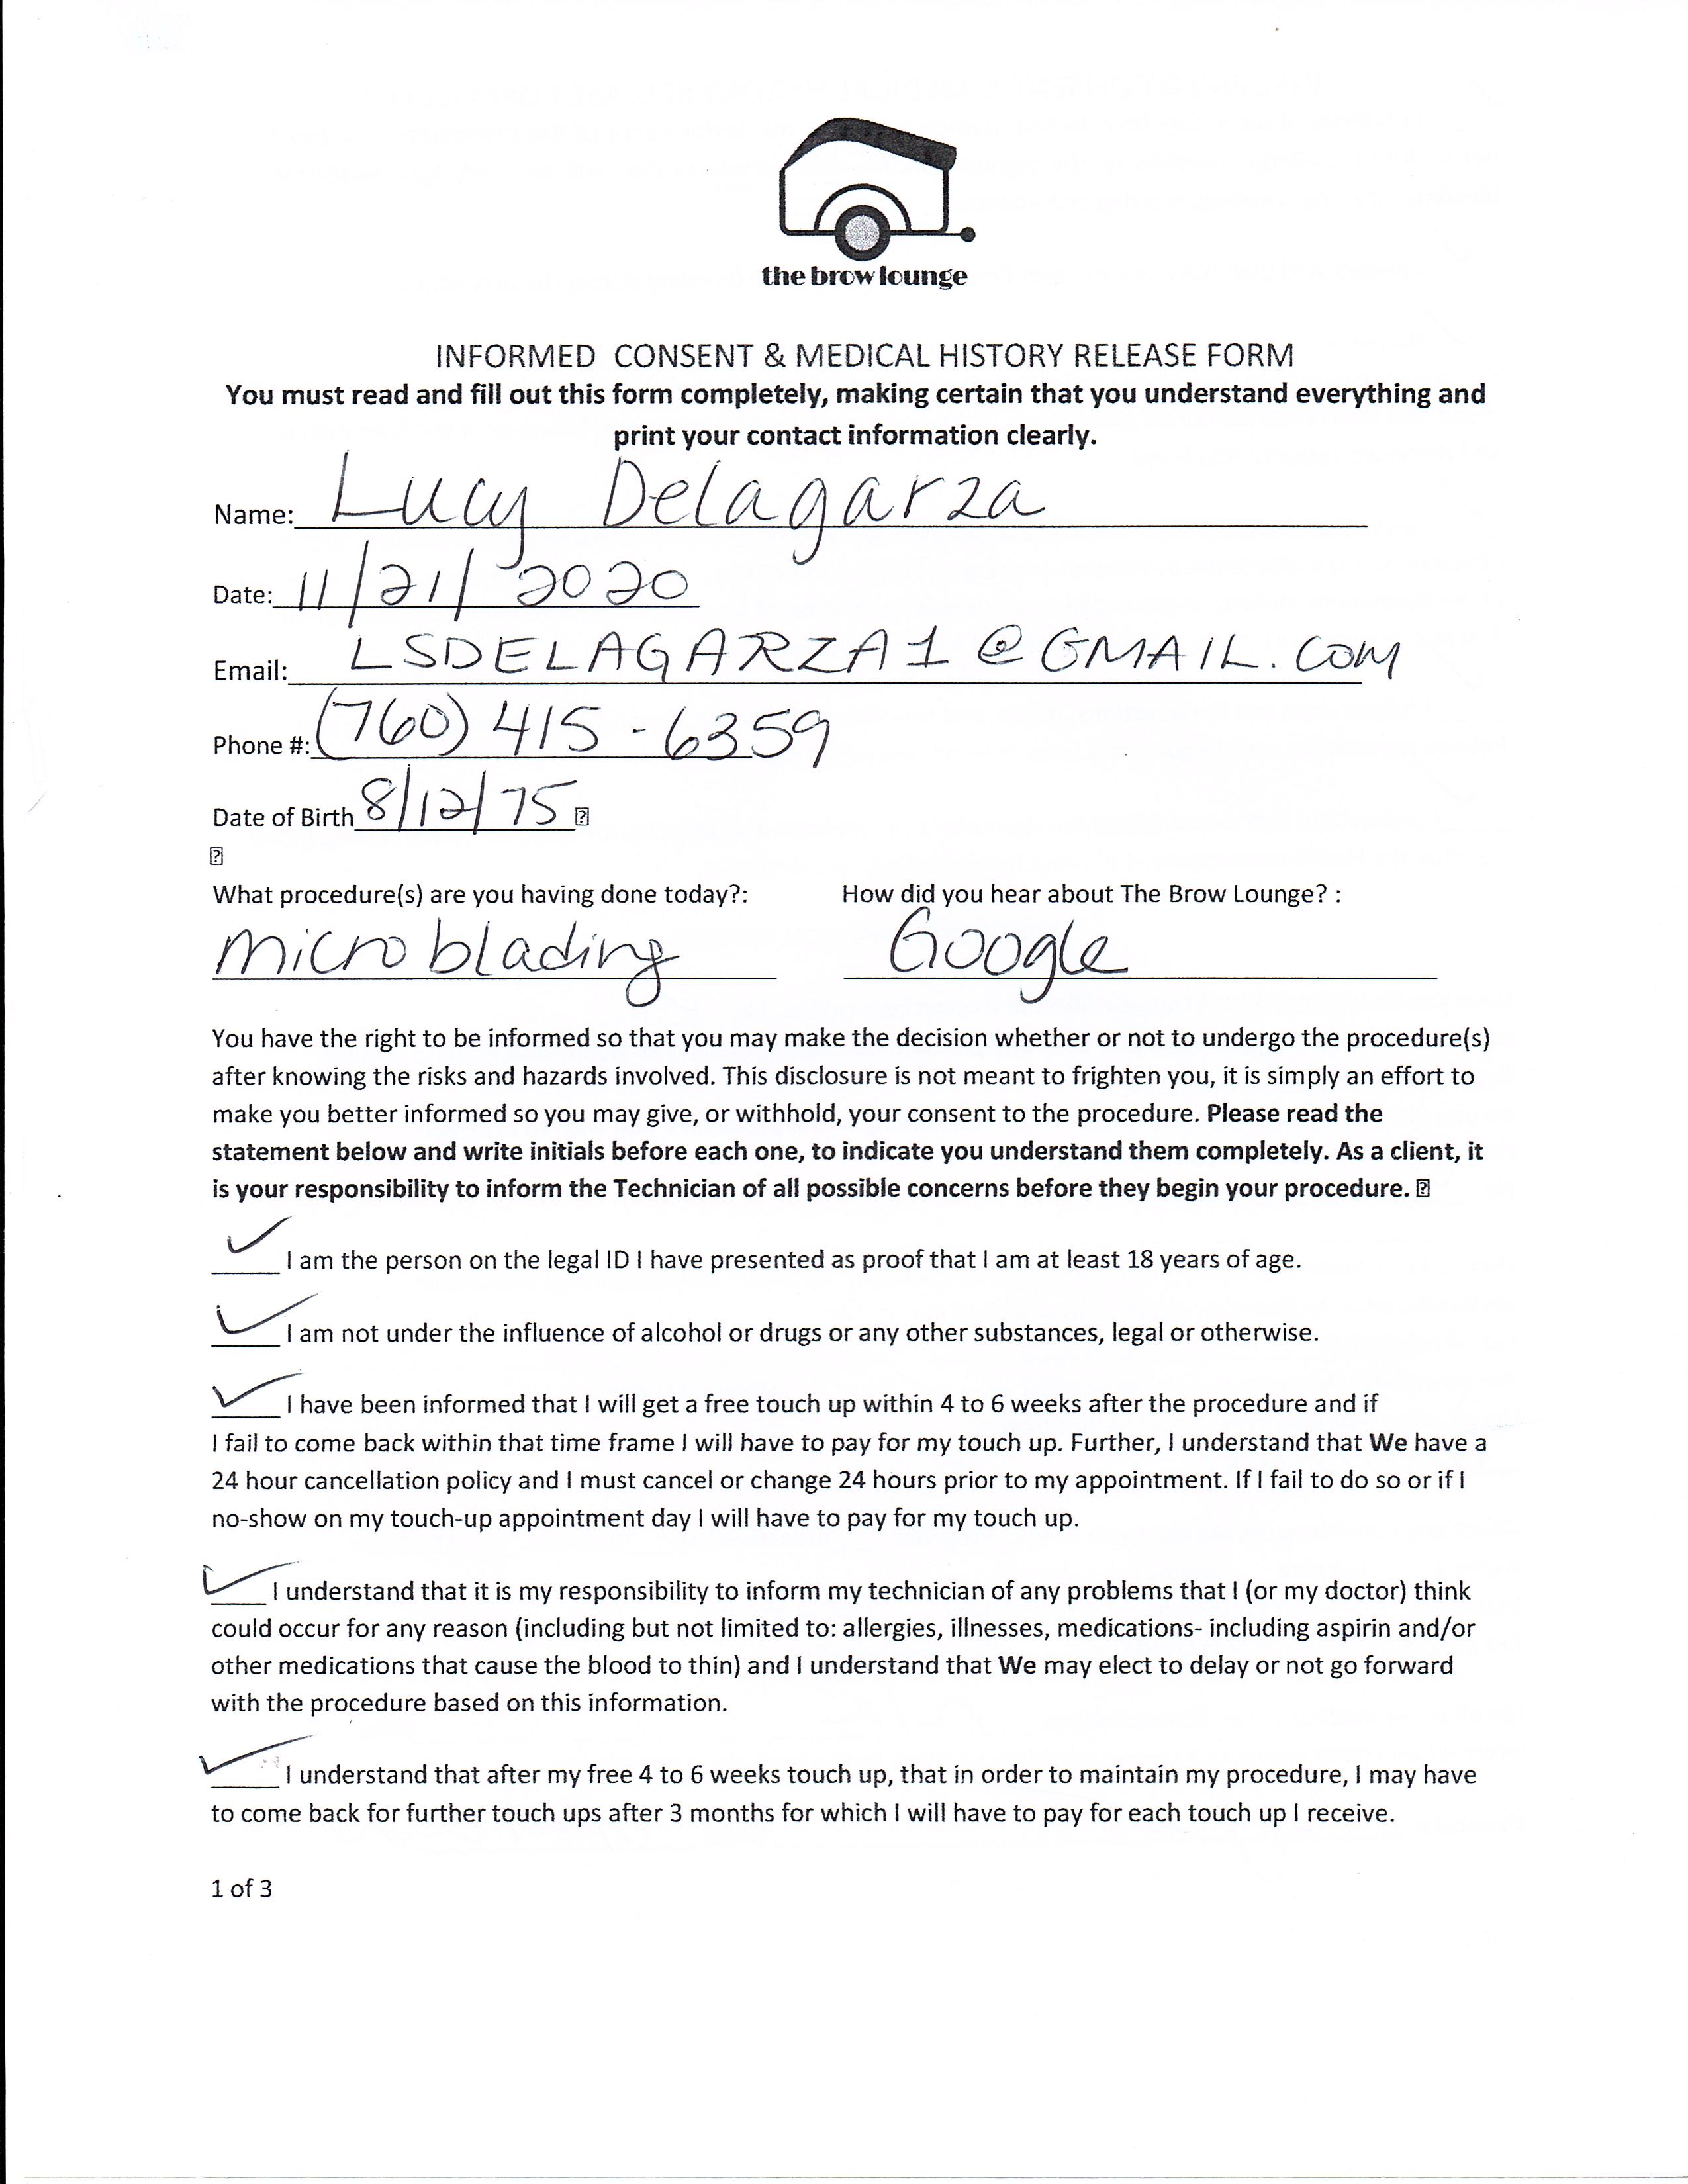 the brow lounge
INFORMED CONSENT & MEDICAL HISTORY RELEASE FORM
You must read and fill out this form completely, making certain that you understand everything and
print your contact information clearly.
Name: Lucy Delagarza
Date: 11/21/2020
Email: LSDELAGARZA1@GMAIL.COM
Phone #: (760) 415-6359
Date of Birth 8/12/75
What procedure(s) are you having done today?: How did you hear about The Brow Lounge? :
microblading Google
You have the right to be informed so that you may make the decision whether or not to undergo the procedure(s)
after knowing the risks and hazards involved. This disclosure is not meant to frighten you, it is simply an effort to
make you better informed so you may give, or withhold, your consent to the procedure. Please read the
statement below and write initials before each one, to indicate you understand them completely. As a client, it
is your responsibility to inform the Technician of all possible concerns before they begin your procedure.
✓ I am the person on the legal ID I have presented as proof that I am at least 18 years of age.
✓ I am not under the influence of alcohol or drugs or any other substances, legal or otherwise.
✓ I have been informed that I will get a free touch up within 4 to 6 weeks after the procedure and if
I fail to come back within that time frame I will have to pay for my touch up. Further, I understand that We have a
24 hour cancellation policy and I must cancel or change 24 hours prior to my appointment. If I fail to do so or if I
no-show on my touch-up appointment day I will have to pay for my touch up.
✓ I understand that it is my responsibility to inform my technician of any problems that I (or my doctor) think
could occur for any reason (including but not limited to: allergies, illnesses, medications- including aspirin and/or
other medications that cause the blood to thin) and I understand that We may elect to delay or not go forward
with the procedure based on this information.
✓ I understand that after my free 4 to 6 weeks touch up, that in order to maintain my procedure, I may have
to come back for further touch ups after 3 months for which I will have to pay for each touch up I receive.
1 of 3